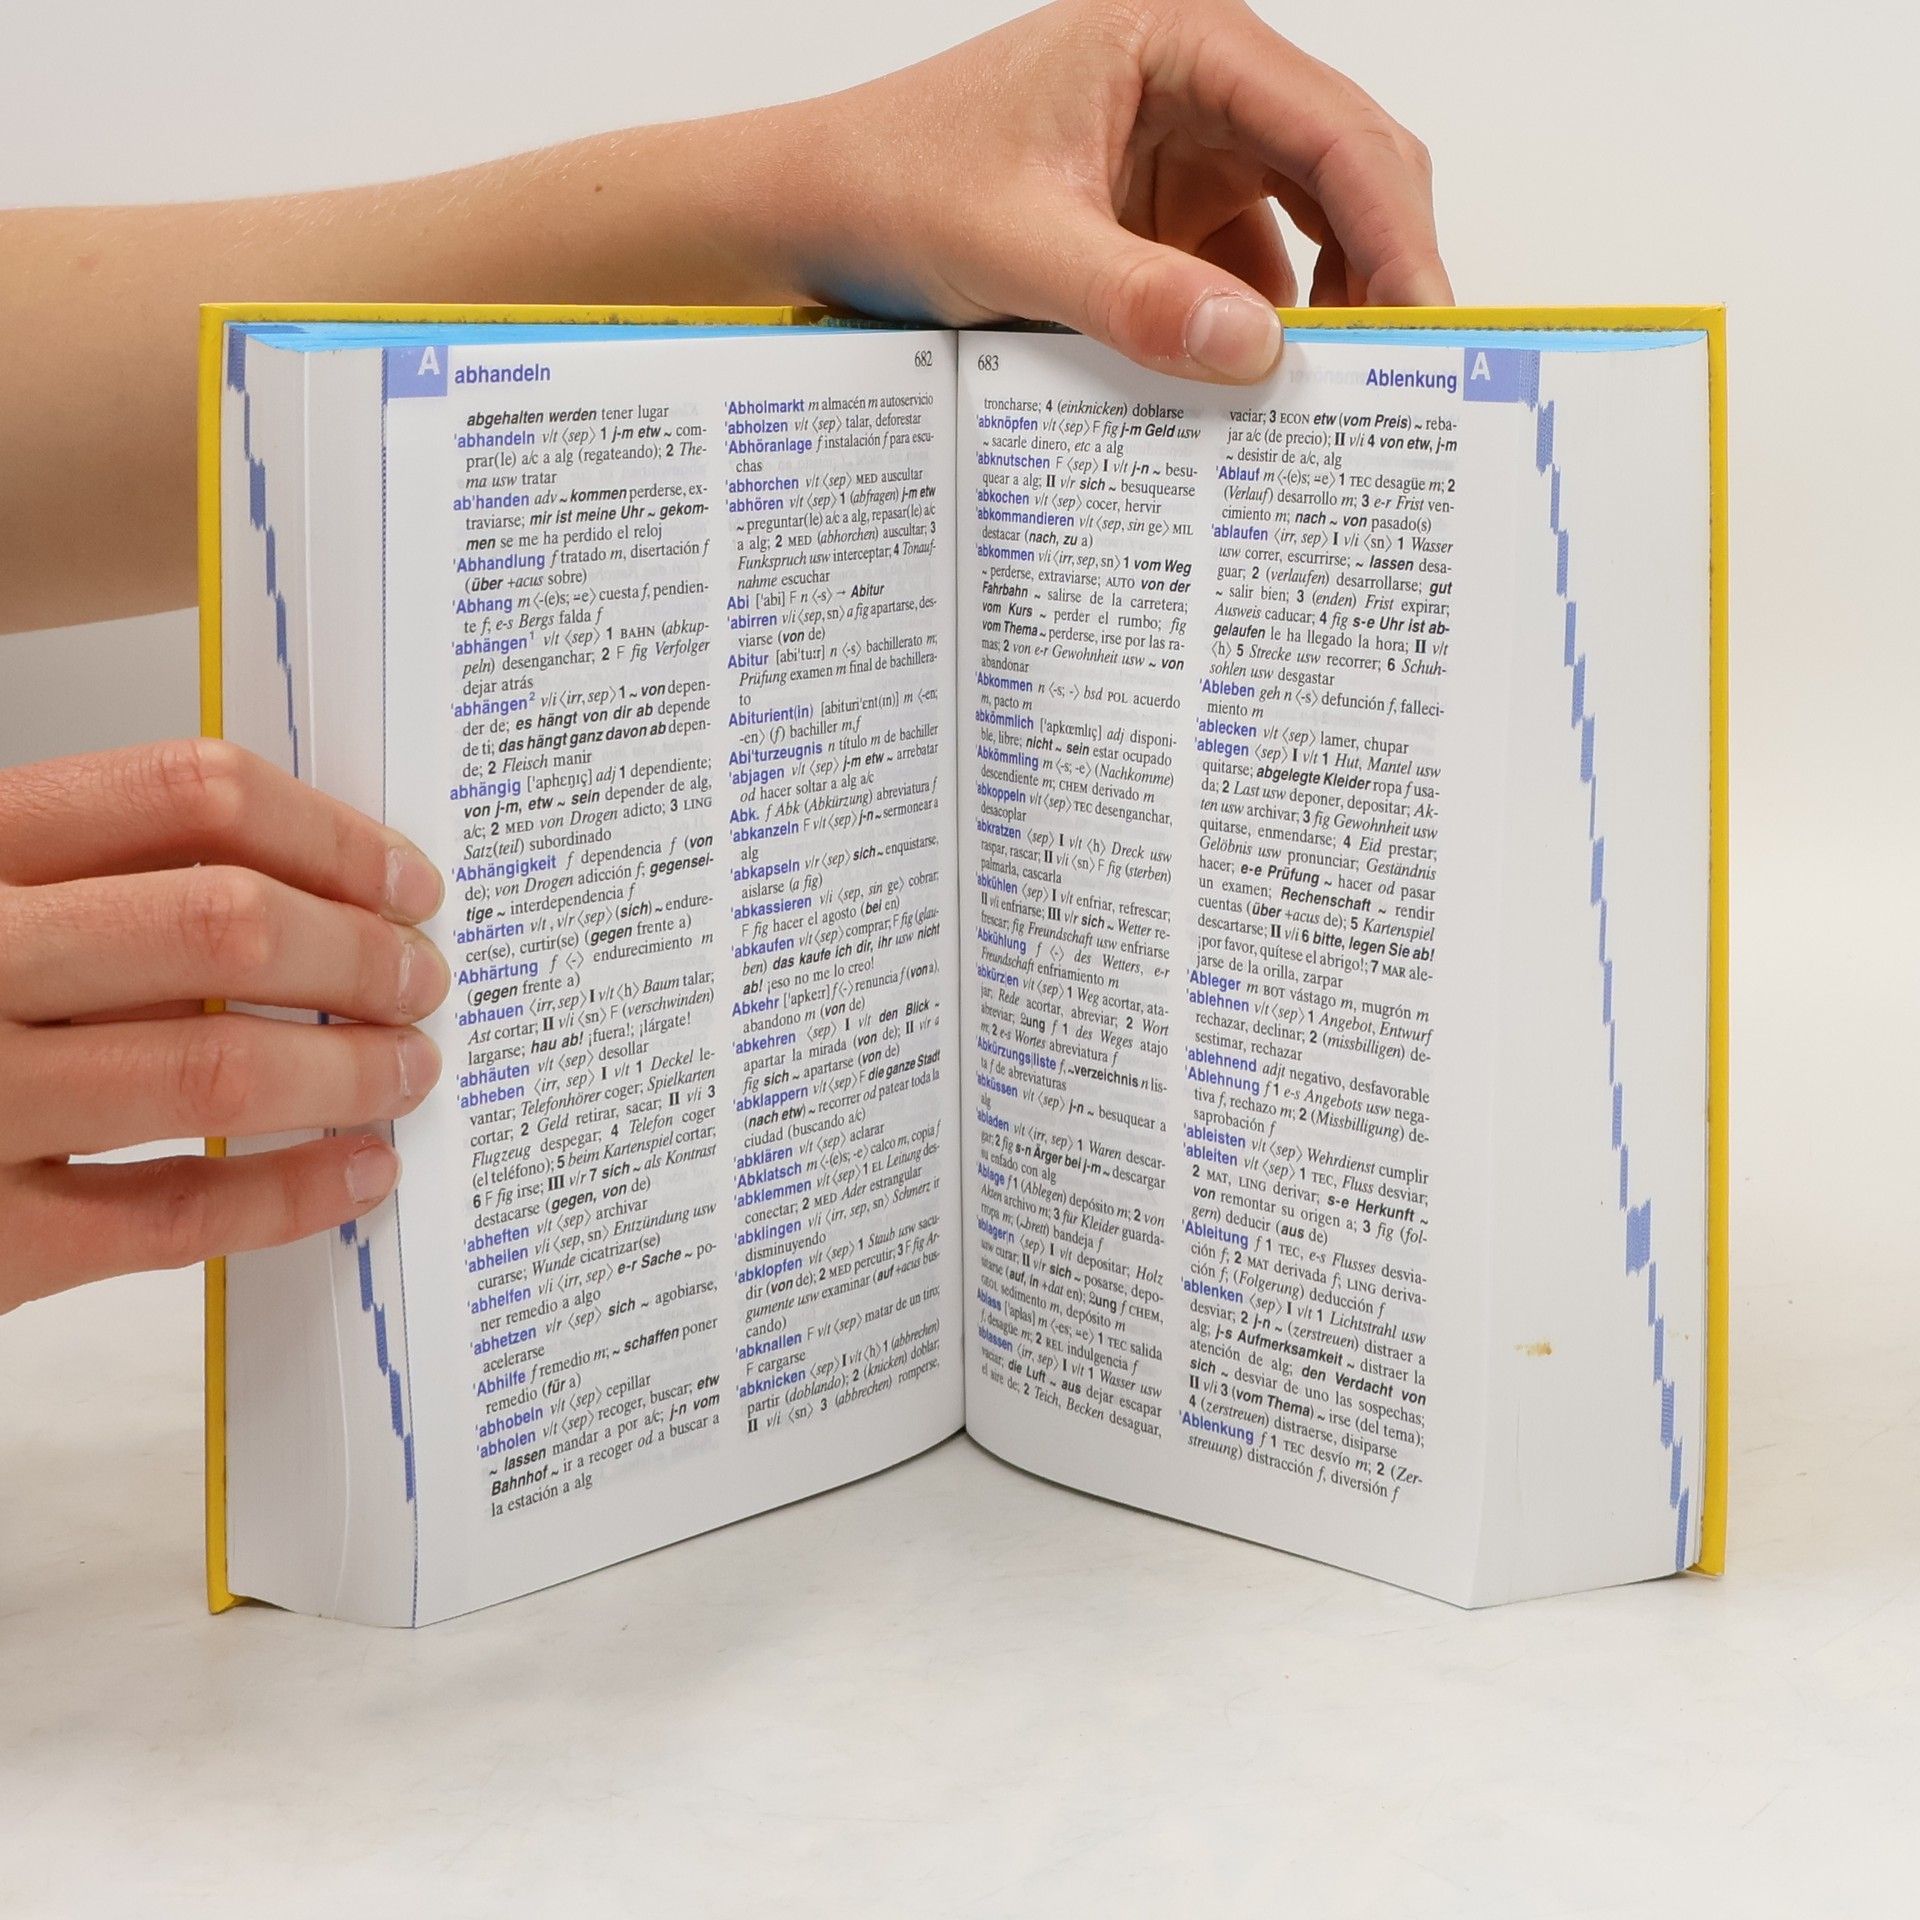 A abhandeln 682
abgehalten werden tener lugar
'abhandeln v/t ⟨sep⟩ 1 j-m etw ~ com-
prar(le) a/c a alg (regateando); 2 The-
ma usw tratar
ab'handen adv ~ kommen perderse, ex-
traviarse; mir ist meine Uhr ~ gekom-
men se me ha perdido el reloj
'Abhandlung f tratado m, disertación f
(über +acus sobre)
'Abhang m ⟨-(e)s; ⸚e⟩ cuesta f, pendien-
te f; e-s Bergs falda f
'abhängen¹ v/t ⟨sep⟩ 1 BAHN (abkup-
peln) desenganchar; 2 F fig Verfolger
dejar atrás
'abhängen² v/i ⟨irr, sep⟩ 1 ~ von depen-
der de; es hängt von dir ab depende
de ti; das hängt ganz davon ab depen-
de; 2 Fleisch manir
abhängig ['aphɛŋɪç] adj 1 dependiente;
von j-m, etw ~ sein depender de alg,
a/c; 2 MED von Drogen adicto; 3 LING
Satz(teil) subordinado
'Abhängigkeit f dependencia f (von
de); von Drogen adicción f; gegensei-
tige ~ interdependencia f
'abhärten v/t, v/r ⟨sep⟩ (sich) ~ endure-
cer(se), curtir(se) (gegen frente a)
'Abhärtung f ⟨-⟩ endurecimiento m
(gegen frente a)
'abhauen ⟨irr, sep⟩ I v/t ⟨h⟩ Baum talar;
Ast cortar; II v/i ⟨sn⟩ F (verschwinden)
largarse; hau ab! ¡fuera!; ¡lárgate!
'abhäuten v/t ⟨sep⟩ desollar
'abheben ⟨irr, sep⟩ I v/t 1 Deckel le-
vantar; Telefonhörer coger; Spielkarten
cortar; 2 Geld retirar, sacar; II v/i 3
Flugzeug despegar; 4 Telefon coger
(el teléfono); 5 beim Kartenspiel cortar;
6 F fig irse; III v/r 7 sich ~ als Kontrast
destacarse (gegen, von de)
'abheften v/t ⟨sep⟩ archivar
'abheilen v/i ⟨sep, sn⟩ Entzündung usw
curarse; Wunde cicatrizar(se)
'abhelfen v/i ⟨irr, sep⟩ e-r Sache ~ po-
ner remedio a algo
'abhetzen v/r ⟨sep⟩ sich ~ agobiarse,
acelerarse
'Abhilfe f remedio m; ~ schaffen poner
remedio (für a)
'abhobeln v/t ⟨sep⟩ cepillar
'abholen v/t ⟨sep⟩ recoger, buscar; etw
~ lassen mandar a por a/c; j-n vom
Bahnhof ~ ir a recoger od a buscar a
la estación a alg
'Abholmarkt m almacén m autoservicio
'abholzen v/t ⟨sep⟩ talar, deforestar
'Abhöranlage f instalación f para escu-
chas
'abhorchen v/t ⟨sep⟩ MED auscultar
'abhören v/t ⟨sep⟩ 1 (abfragen) j-m etw
~ preguntar(le) a/c a alg, repasar(le) a/c
a alg; 2 MED (abhorchen) auscultar; 3
Funkspruch usw interceptar; 4 Tonauf-
nahme escuchar
Abi ['abi] F n ⟨-s⟩ → Abitur
'abirren v/i ⟨sep, sn⟩ a fig apartarse, des-
viarse (von de)
Abitur [abi'tu:r] n ⟨-s⟩ bachillerato m;
Prüfung examen m final de bachillera-
to
Abiturient(in) [abituri'ɛnt(ɪn)] m ⟨-en;
-en⟩ (f) bachiller m,f
Abi'turzeugnis n título m de bachiller
'abjagen v/t ⟨sep⟩ j-m etw ~ arrebatar
od hacer soltar a alg a/c
Abk. f Abk (Abkürzung) abreviatura f
'abkanzeln F v/t ⟨sep⟩ j-n ~ sermonear a
alg
'abkapseln v/r ⟨sep⟩ sich ~ enquistarse,
aislarse (a fig)
'abkassieren v/i ⟨sep, sin ge⟩ cobrar;
F fig hacer el agosto (bei en)
'abkaufen v/t ⟨sep⟩ comprar; F fig (glau-
ben) das kaufe ich dir, ihr usw nicht
ab! ¡eso no me lo creo!
Abkehr ['apke:r] f ⟨-⟩ renuncia f (von a),
abandono m (von de)
'abkehren ⟨sep⟩ I v/t den Blick ~
apartar la mirada (von de); II v/r a
fig sich ~ apartarse (von de)
'abklappern v/t ⟨sep⟩ F die ganze Stadt
(nach etw) ~ recorrer od patear toda la
ciudad (buscando a/c)
'abklären v/t ⟨sep⟩ aclarar
'Abklatsch m ⟨-(e)s; -e⟩ calco m, copia f
'abklemmen v/t ⟨sep⟩ 1 EL Leitung des-
conectar; 2 MED Ader estrangular
'abklingen v/i ⟨irr, sep, sn⟩ Schmerz ir
disminuyendo
'abklopfen v/t ⟨sep⟩ 1 Staub usw sacu-
dir (von de); 2 MED percutir; 3 F fig Ar-
gumente usw examinar (auf +acus bus-
cando)
'abknallen F v/t ⟨sep⟩ matar de un tiro;
F cargarse
'abknicken ⟨sep⟩ I v/t ⟨h⟩ 1 (abbrechen)
partir (doblando); 2 (knicken) doblar;
II v/i ⟨sn⟩ 3 (abbrechen) romperse,
683 Ablenkung A
troncharse; 4 (einknicken) doblarse
'abknöpfen v/t ⟨sep⟩ F fig j-m Geld usw
~ sacarle dinero, etc a alg
'abknutschen F ⟨sep⟩ I v/t j-n ~ besu-
quear a alg; II v/r sich ~ besuquearse
'abkochen v/t ⟨sep⟩ cocer, hervir
'abkommandieren v/t ⟨sep, sin ge⟩ MIL
destacar (nach, zu a)
'abkommen v/i ⟨irr, sep, sn⟩ 1 vom Weg
~ perderse, extraviarse; AUTO von der
Fahrbahn ~ salirse de la carretera;
vom Kurs ~ perder el rumbo; fig
vom Thema ~ perderse, irse por las ra-
mas; 2 von e-r Gewohnheit usw ~ von
abandonar
'Abkommen n ⟨-s; -⟩ bsd POL acuerdo
m, pacto m
abkömmlich ['apkœmlɪç] adj disponi-
ble, libre; nicht ~ sein estar ocupado
'Abkömmling m ⟨-s; -e⟩ (Nachkomme)
descendiente m; CHEM derivado m
'abkoppeln v/t ⟨sep⟩ TEC desenganchar,
desacoplar
'abkratzen ⟨sep⟩ I v/t ⟨h⟩ Dreck usw
raspar, rascar; II v/i ⟨sn⟩ F fig (sterben)
palmarla, cascarla
'abkühlen ⟨sep⟩ I v/t enfriar, refrescar;
II v/i enfriarse; III v/r sich ~ Wetter re-
frescar; fig Freundschaft usw enfriarse
'Abkühlung f ⟨-⟩ des Wetters, e-r
Freundschaft enfriamiento m
'abkürz|en v/t ⟨sep⟩ 1 Weg acortar, ata-
jar; Rede acortar, abreviar; 2 Wort
abreviar; 2ung f 1 des Weges atajo
m; 2 e-s Wortes abreviatura f
'Abkürzungs|liste f, ~verzeichnis n lis-
ta f de abreviaturas
'abküssen v/t ⟨sep⟩ j-n ~ besuquear a
alg
'abladen v/t ⟨irr, sep⟩ 1 Waren descar-
gar; 2 fig s-n Ärger bei j-m ~ descargar
su enfado con alg
'Ablage f 1 (Ablegen) depósito m; 2 von
Akten archivo m; 3 für Kleider guarda-
rropa m; (~brett) bandeja f
'ablager|n ⟨sep⟩ I v/t depositar; Holz
usw curar; II v/r sich ~ posarse, depo-
sitarse (auf, in +dat en); 2ung f CHEM,
GEOL sedimento m, depósito m
Ablass ['aplas] m ⟨-es; ⸚e⟩ 1 TEC salida
f, desagüe m; 2 REL indulgencia f
'ablassen ⟨irr, sep⟩ I v/t 1 Wasser usw
vaciar; die Luft ~ aus dejar escapar
el aire de; 2 Teich, Becken desaguar,
vaciar; 3 ECON etw (vom Preis) ~ reba-
jar a/c (de precio); II v/i 4 von etw, j-m
~ desistir de a/c, alg
'Ablauf m ⟨-(e)s; ⸚e⟩ 1 TEC desagüe m; 2
(Verlauf) desarrollo m; 3 e-r Frist ven-
cimiento m; nach ~ von pasado(s)
'ablaufen ⟨irr, sep⟩ I v/i ⟨sn⟩ 1 Wasser
usw correr, escurrirse; ~ lassen desa-
guar; 2 (verlaufen) desarrollarse; gut
~ salir bien; 3 (enden) Frist expirar;
Ausweis caducar; 4 fig s-e Uhr ist ab-
gelaufen le ha llegado la hora; II v/t
⟨h⟩ 5 Strecke usw recorrer; 6 Schuh-
sohlen usw desgastar
'Ableben geh n ⟨-s⟩ defunción f, falleci-
miento m
'ablecken v/t ⟨sep⟩ lamer, chupar
'ablegen ⟨sep⟩ I v/t 1 Hut, Mantel usw
quitarse; abgelegte Kleider ropa f usa-
da; 2 Last usw deponer, depositar; Ak-
ten usw archivar; 3 fig Gewohnheit usw
quitarse, enmendarse; 4 Eid prestar;
Gelöbnis usw pronunciar; Geständnis
hacer; e-e Prüfung ~ hacer od pasar
un examen; Rechenschaft ~ rendir
cuentas (über +acus de); 5 Kartenspiel
descartarse; II v/i 6 bitte, legen Sie ab!
¡por favor, quítese el abrigo!; 7 MAR ale-
jarse de la orilla, zarpar
'Ableger m BOT vástago m, mugrón m
'ablehnen v/t ⟨sep⟩ 1 Angebot, Entwurf
rechazar, declinar; 2 (missbilligen) de-
sestimar, rechazar
'ablehnend adjt negativo, desfavorable
'Ablehnung f 1 e-s Angebots usw nega-
tiva f, rechazo m; 2 (Missbilligung) de-
saprobación f
'ableisten v/t ⟨sep⟩ Wehrdienst cumplir
'ableiten v/t ⟨sep⟩ 1 TEC, Fluss desviar;
2 MAT, LING derivar; s-e Herkunft ~
von remontar su origen a; 3 fig (fol-
gern) deducir (aus de)
'Ableitung f 1 TEC, e-s Flusses desvia-
ción f; 2 MAT derivada f; LING deriva-
ción f; (Folgerung) deducción f
'ablenken ⟨sep⟩ I v/t 1 Lichtstrahl usw
desviar; 2 j-n ~ (zerstreuen) distraer a
alg; j-s Aufmerksamkeit ~ distraer la
atención de alg; den Verdacht von
sich ~ desviar de uno las sospechas;
II v/i 3 (vom Thema) ~ irse (del tema);
4 (zerstreuen) distraerse, disiparse
'Ablenkung f 1 TEC desvío m; 2 (Zer-
streuung) distracción f, diversión f